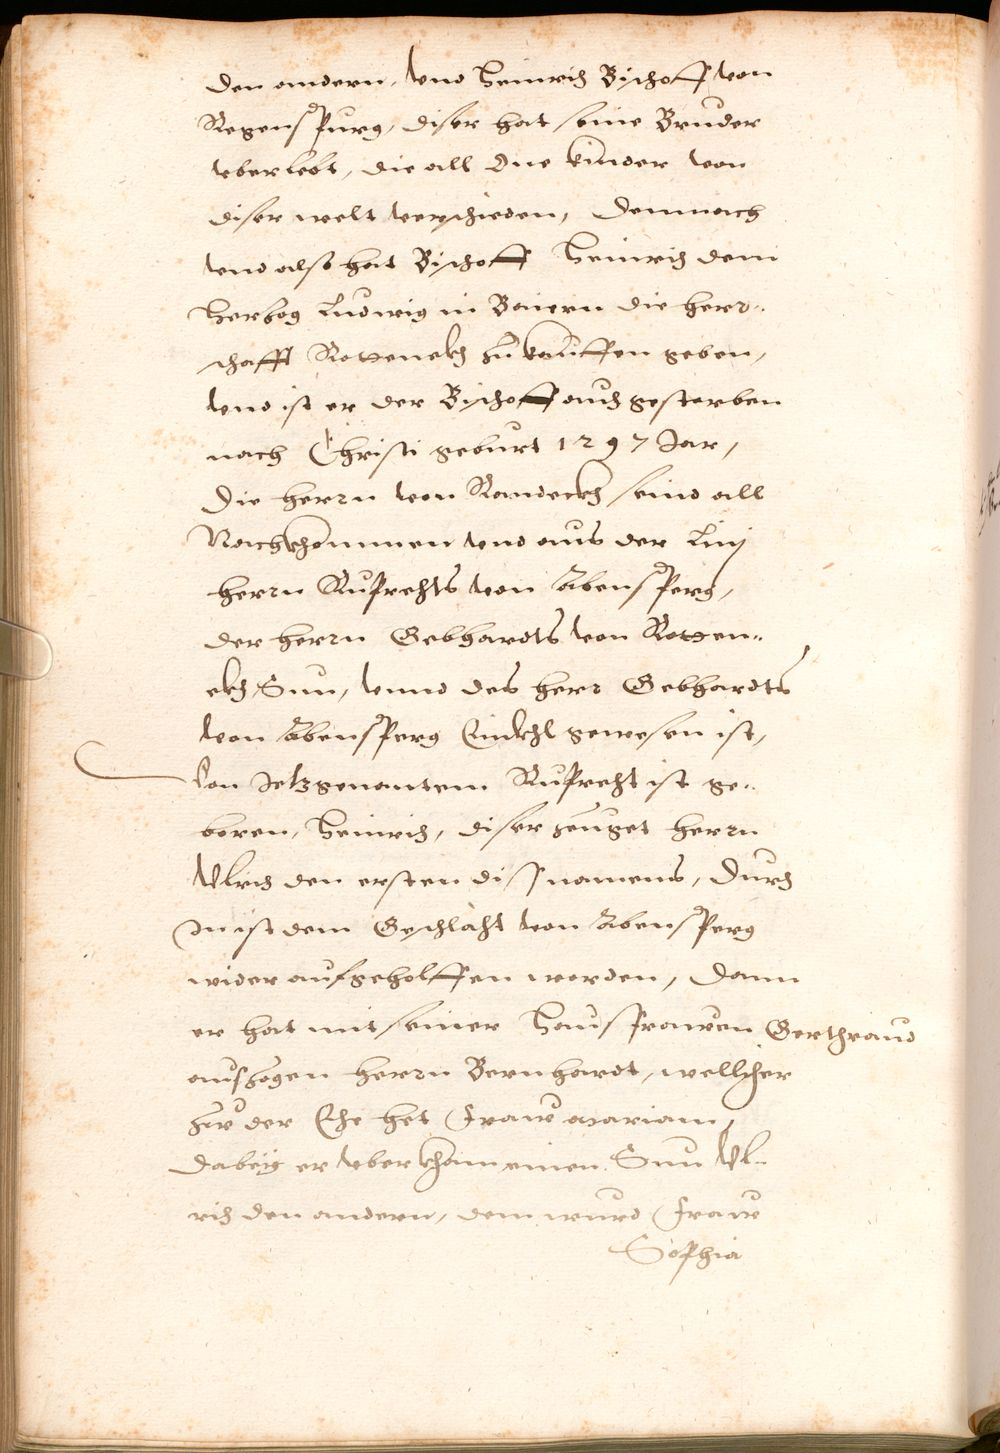 den andern, vnd Heinrich Bischoff von
Regenspurg, diser hat seine Bruder
vberlebt, die all One kinder von
diser welt verschieden, demnach
vnd also hat Bischoff Heinrich dem
Herzog Ludwig in Baiern die herr-
schafft Rotteneckh zu kauffen geben,
vnd ist er der Bischoff auch gestorben
nach Christi geburt 1297 Jar,
Die herrn von Randeckh seind all
Nachkhommen vnd aus der Linj
herrn Ruprechts von Abensperg,
der herrn Gebhardts von Rotten-
ekh Sun, vnnd des herr Gebhardts
von Abensperg Einikhl gewesen ist,
Von Jetzgenantem Ruprecht ist ge-
boren, Heinrich, diser zeuget herrn
Vlrich den ersten diss namens, Durch
In ist dem Geschlächt von Abensperg
wider aufgeholffen worden, Dann
er hat mit seiner Hausfrawen Gerthraud
auszogen herrn Bernhardt, wellicher
zur der Ehe het fraw Mariam,
dabeÿ er vberkham einen Sun Vl-
rich den andern, dem wurd fraw
Sophia